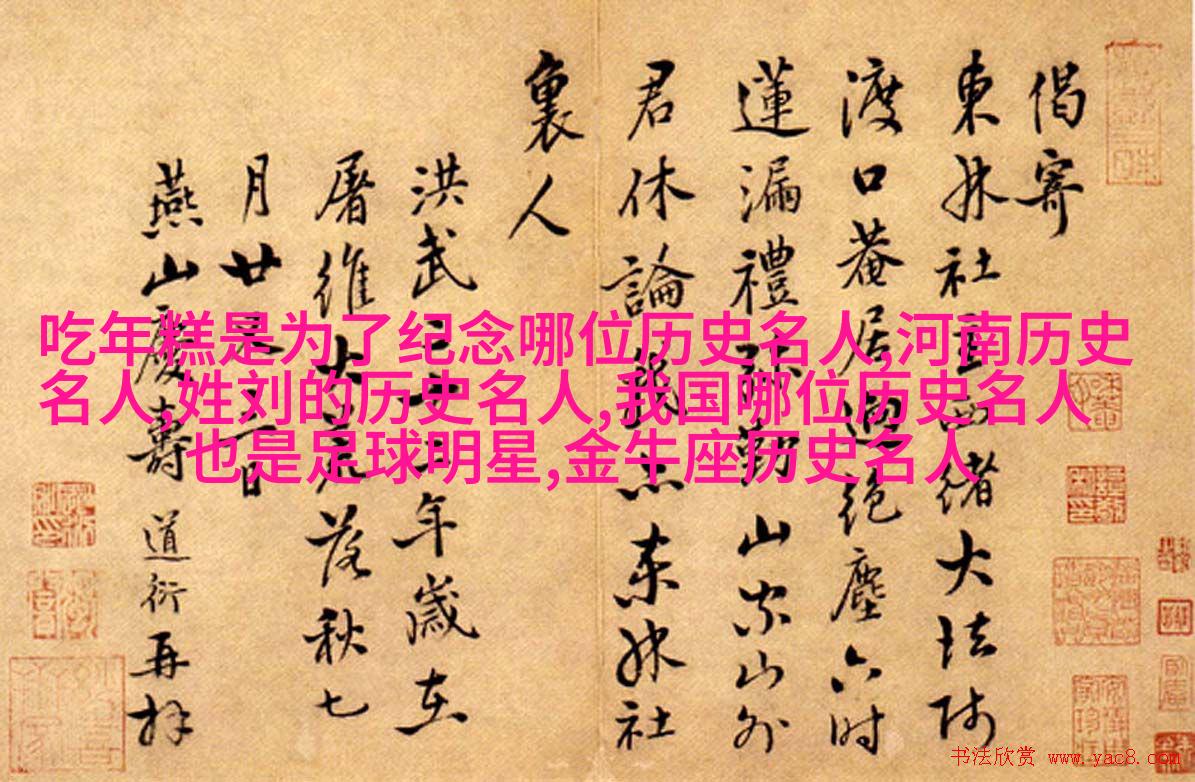 偈寄
東林社緒大法师
渡口菴居迥絕塵六时
蓮漏禮勤山宗山外
君休論我亦東林社
裏人
洪武年歲在
屠維大荒落秋七
月廿一日
燕山慶壽道衍再拜
吃年糕是为了纪念哪位历史名人,河南历史
名人,姓刘的历史名人,我国哪位历史名人
也是足球明星,金牛座历史名人
书法欣赏 www.yac8.com